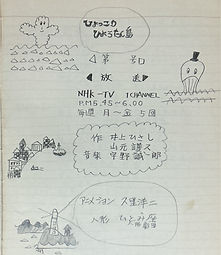 ひょっこり
ひょうたん島
第 号
放送
NHK-TV 1CHANNEL
P.M5.45~6.00
毎週 月~金 5回
作 井上ひさし
山元護久
音楽 宇野誠一郎
アニメーション 久里洋二
人形 ひとみ座